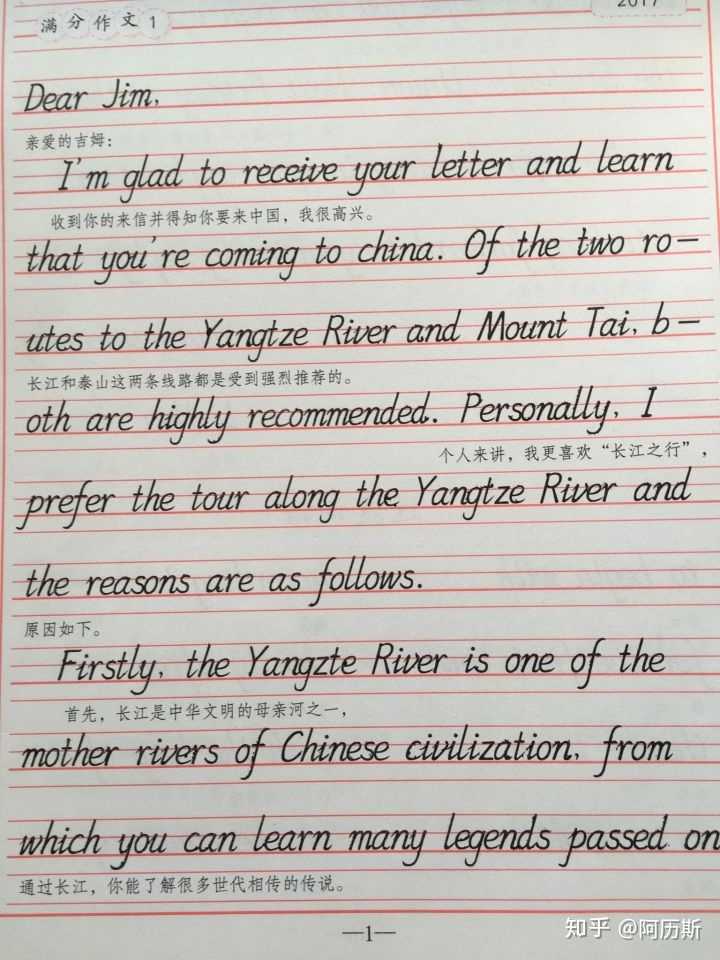 满分作文1
2017
Dear Jim,
亲爱的吉姆：
I'm glad to receive your letter and learn
收到你的来信并得知你要来中国，我很高兴。
that you're coming to china. Of the two ro-
utes to the Yangtze River and Mount Tai, b-
长江和泰山这两条线路都是受到强烈推荐的。
oth are highly recommended. Personally, I
个人来讲，我更喜欢“长江之行”，
prefer the tour along the Yangtze River and
the reasons are as follows.
原因如下。
Firstly, the Yangzte River is one of the
首先，长江是中华文明的母亲河之一，
mother rivers of Chinese civilization, from
which you can learn many legends passed on
通过长江，你能了解很多世代相传的传说。
—1—
知乎 @阿历斯